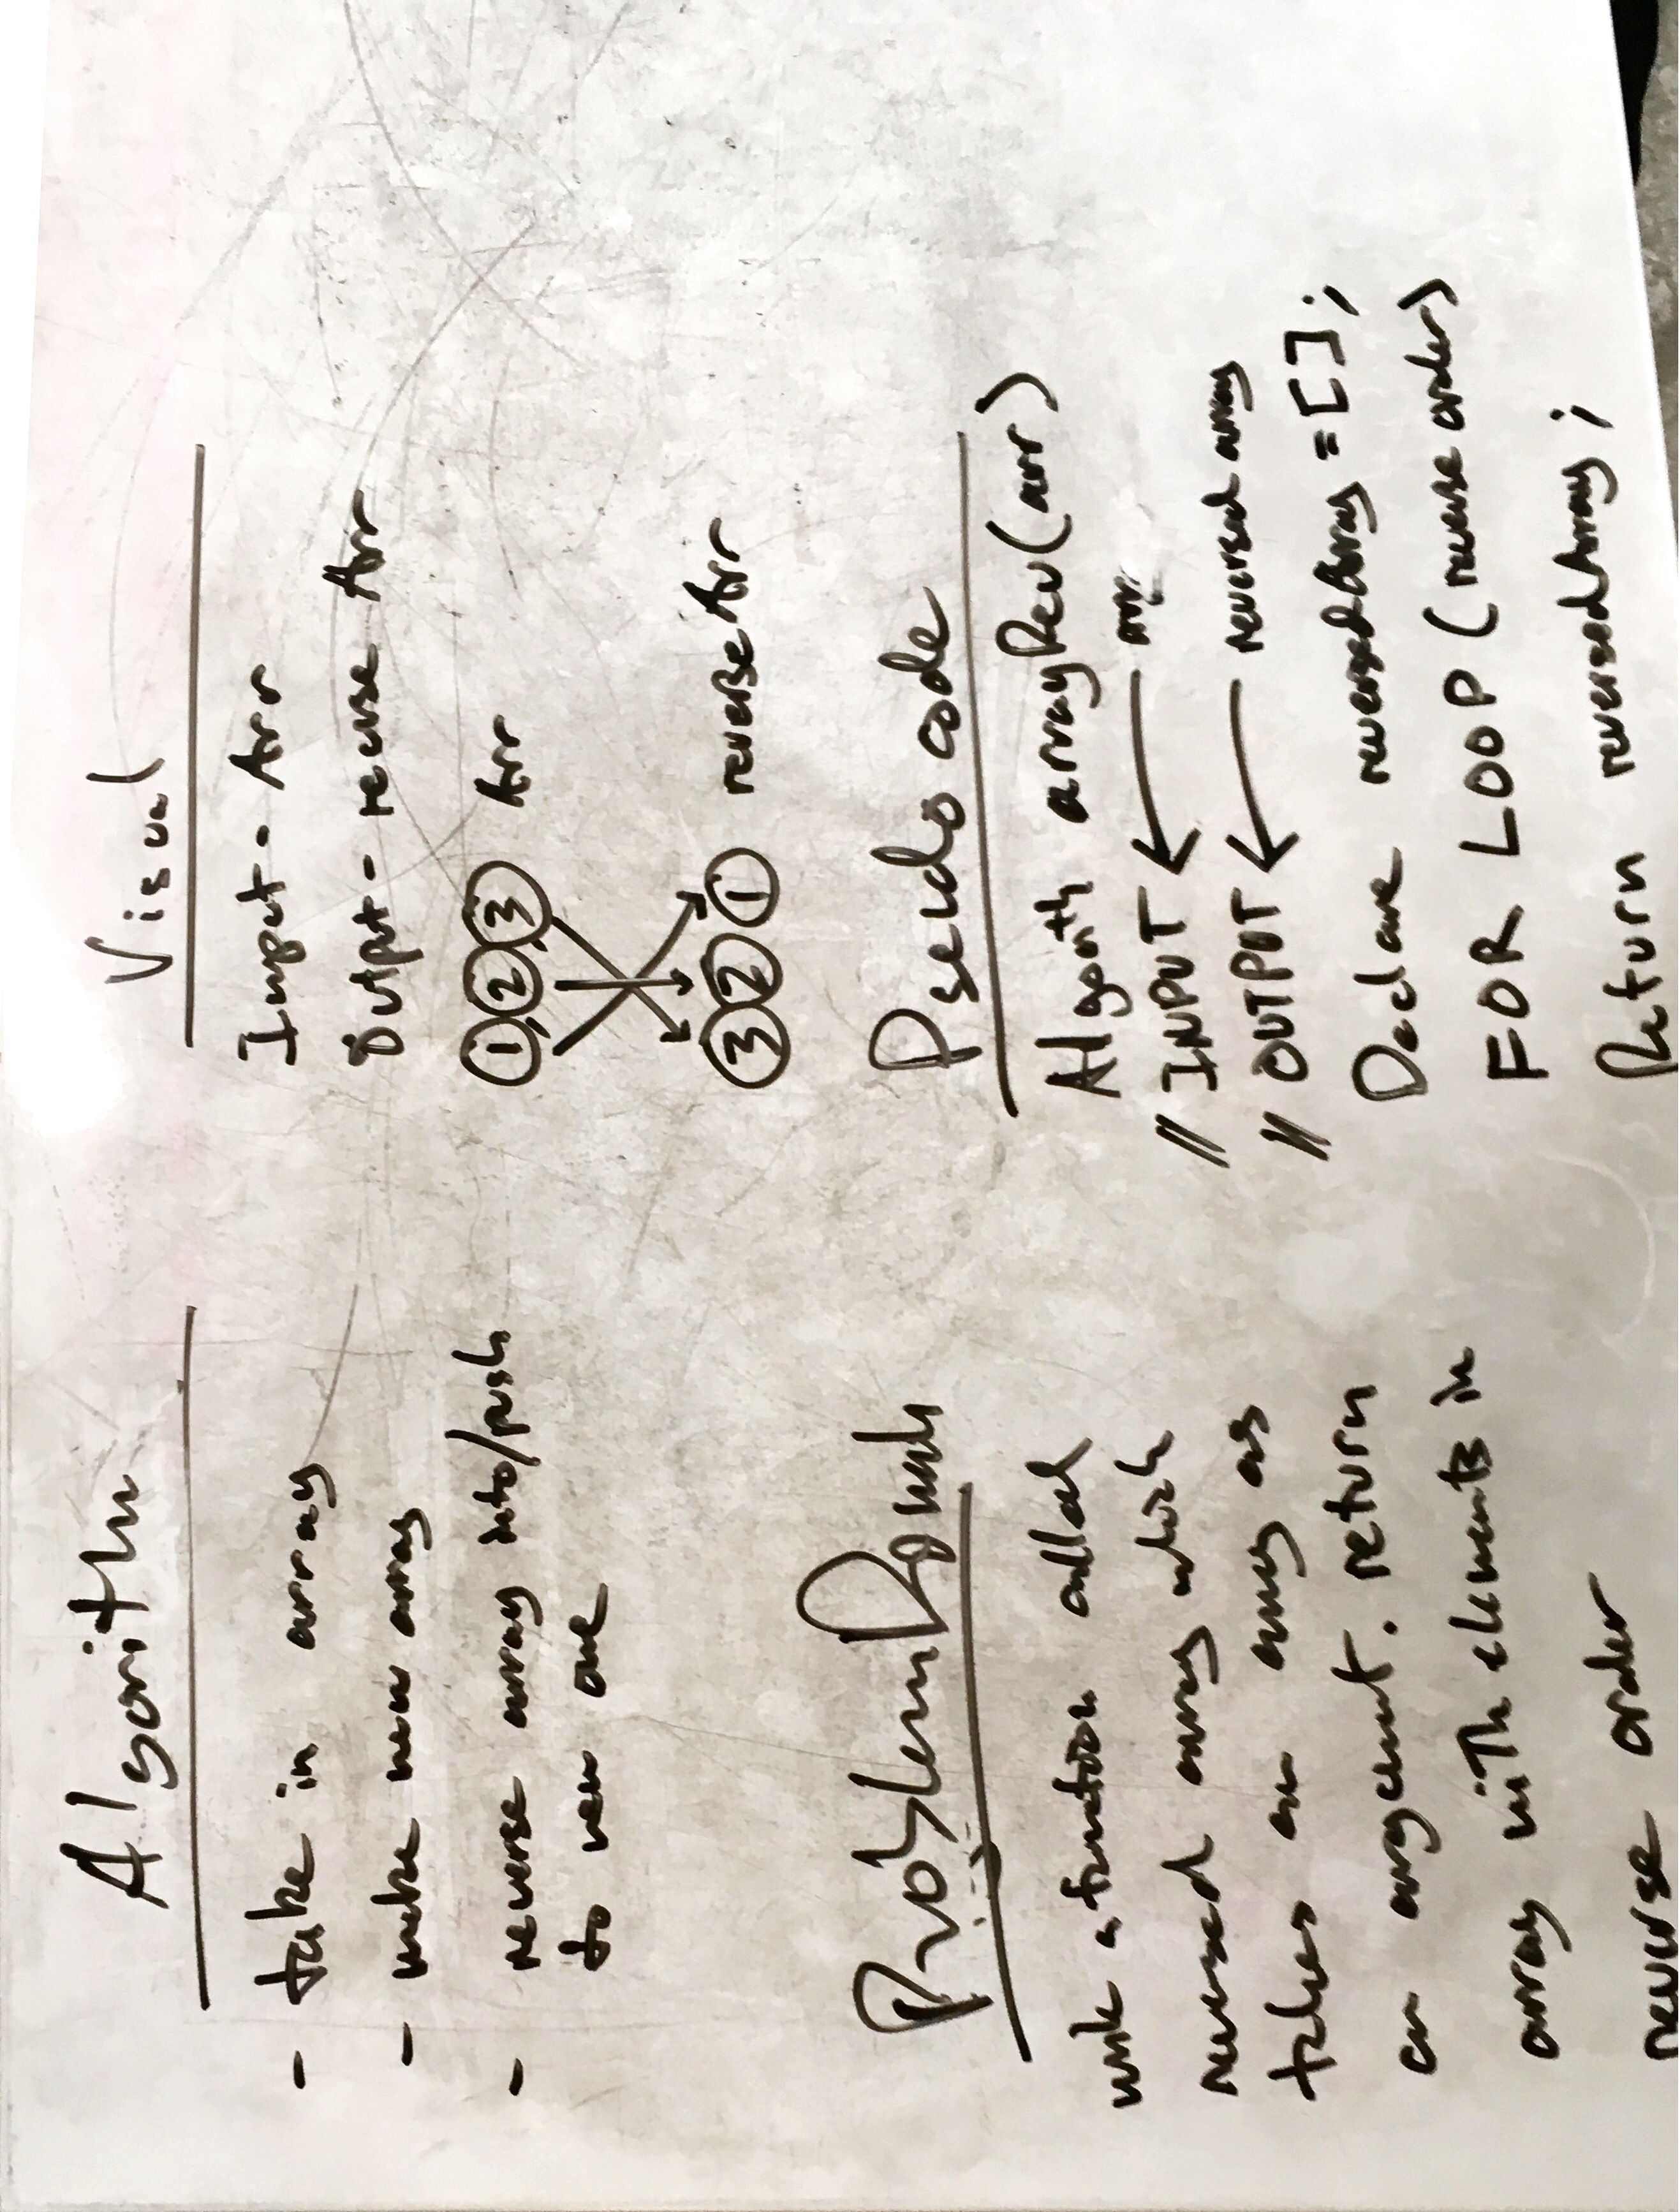 Algorithm
- take in array
- make new array
- reverse array into/push
to new one
Problem Domain
write a function called
reversed array which
takes an array as
an argument. return
array with elements in
reverse order
Visual
Input - Arr
Output - reverse Arr
1 2 3 Arr
3 2 1 reverse Arr
Pseudo code
Algorith arrayRev(arr)
// INPUT ← arr
// OUTPUT ← reversed array
Declare reversedArray = [];
FOR LOOP (reverse order)
Return reversedArray;